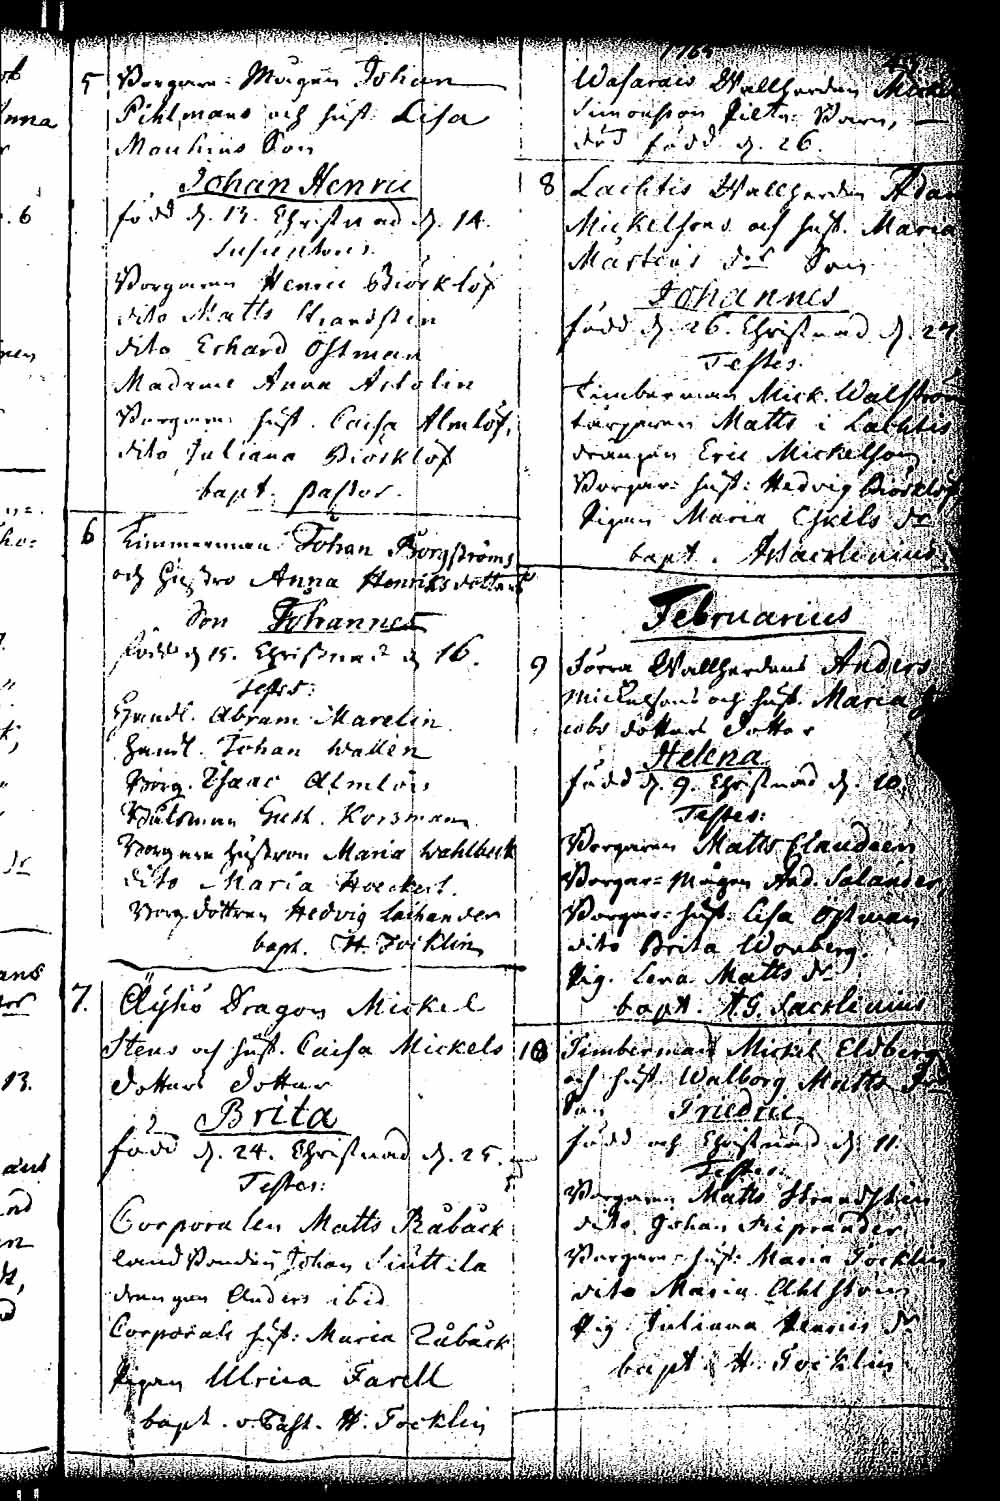 5 Borgare-Mågen Johan
Pihlmans och hust: Lisa
Son
Johan Henric
född d. 13. Christnad d. 14.
Susceptores.
Borgaren Henric Biörklöf
dito Matts Strandsten
dito Erhard Östman
Madame Anna
Borgare hust. Caisa Almlöf,
dito Juliana Biörklöf
bapt. Pastor.
6 Timmerman Johan Borgströms
och Hustro Anna Henriksdotters
Son Johannes
född d 15. Christnad d 16.
Testes:
Handl. Abram Marelin
Handl. Johan Wallén
Borg. Isaac Almlöf
Båtsman Gust. Korsman
Borgare hustron Maria Wahlbeck
dito Maria Hoeckert.
Borg. dottren Hedvig
bapt. H. Focklin
7. Öyhö Dragon Mickel
Stens och hust. Caisa Mickels
dotters dotter
Brita
född d. 24. Christnad d. 25.
Testes:
Corporalen Matts Råbäck
Johan
drängen Anders ibid
Corporals hust: Maria Råbäck
Pigan Ulrica Farell
bapt. v. Past. H. Focklin
1765
Wallherden Mickel
Simonsson Barn,
död född d. 26.
8 Lachtis Wallherden Adam
Mickelsons och hust. Maria
Mårtens dr Son
Johannes
född d. 26. Christnad d. 27
Testes.
Timberman Mick. Walström
Matts i Lachtis
drängen Eric Mickelson
Borgar- hust: Hedvig Biörklöf
Pigan Maria dr
bapt.
Februarius
9 Wallherdens Anders
Mickelsons och hust. Maria Ja
cobs dotters dotter
Helena
född d. 9. Christnad d. 10.
Testes:
Borgaren Matts Claudeén
Borgar-Mågen And. Salander,
Borgar- hust: Lisa Östman
dito Brita Wonberg.
Pig. Lena Matts dr
bapt.
10 Timberman Mickel Eldberg
och hust. Walborg Matts drs
Son Friedric
född och Christnad d. 11.
Testes:
Borgaren Matts Strandsten
dito Johan
Borgare- hust: Maria Focklin
dito Maria Ahlström
Pig. Juliana dr
bapt H. Focklin